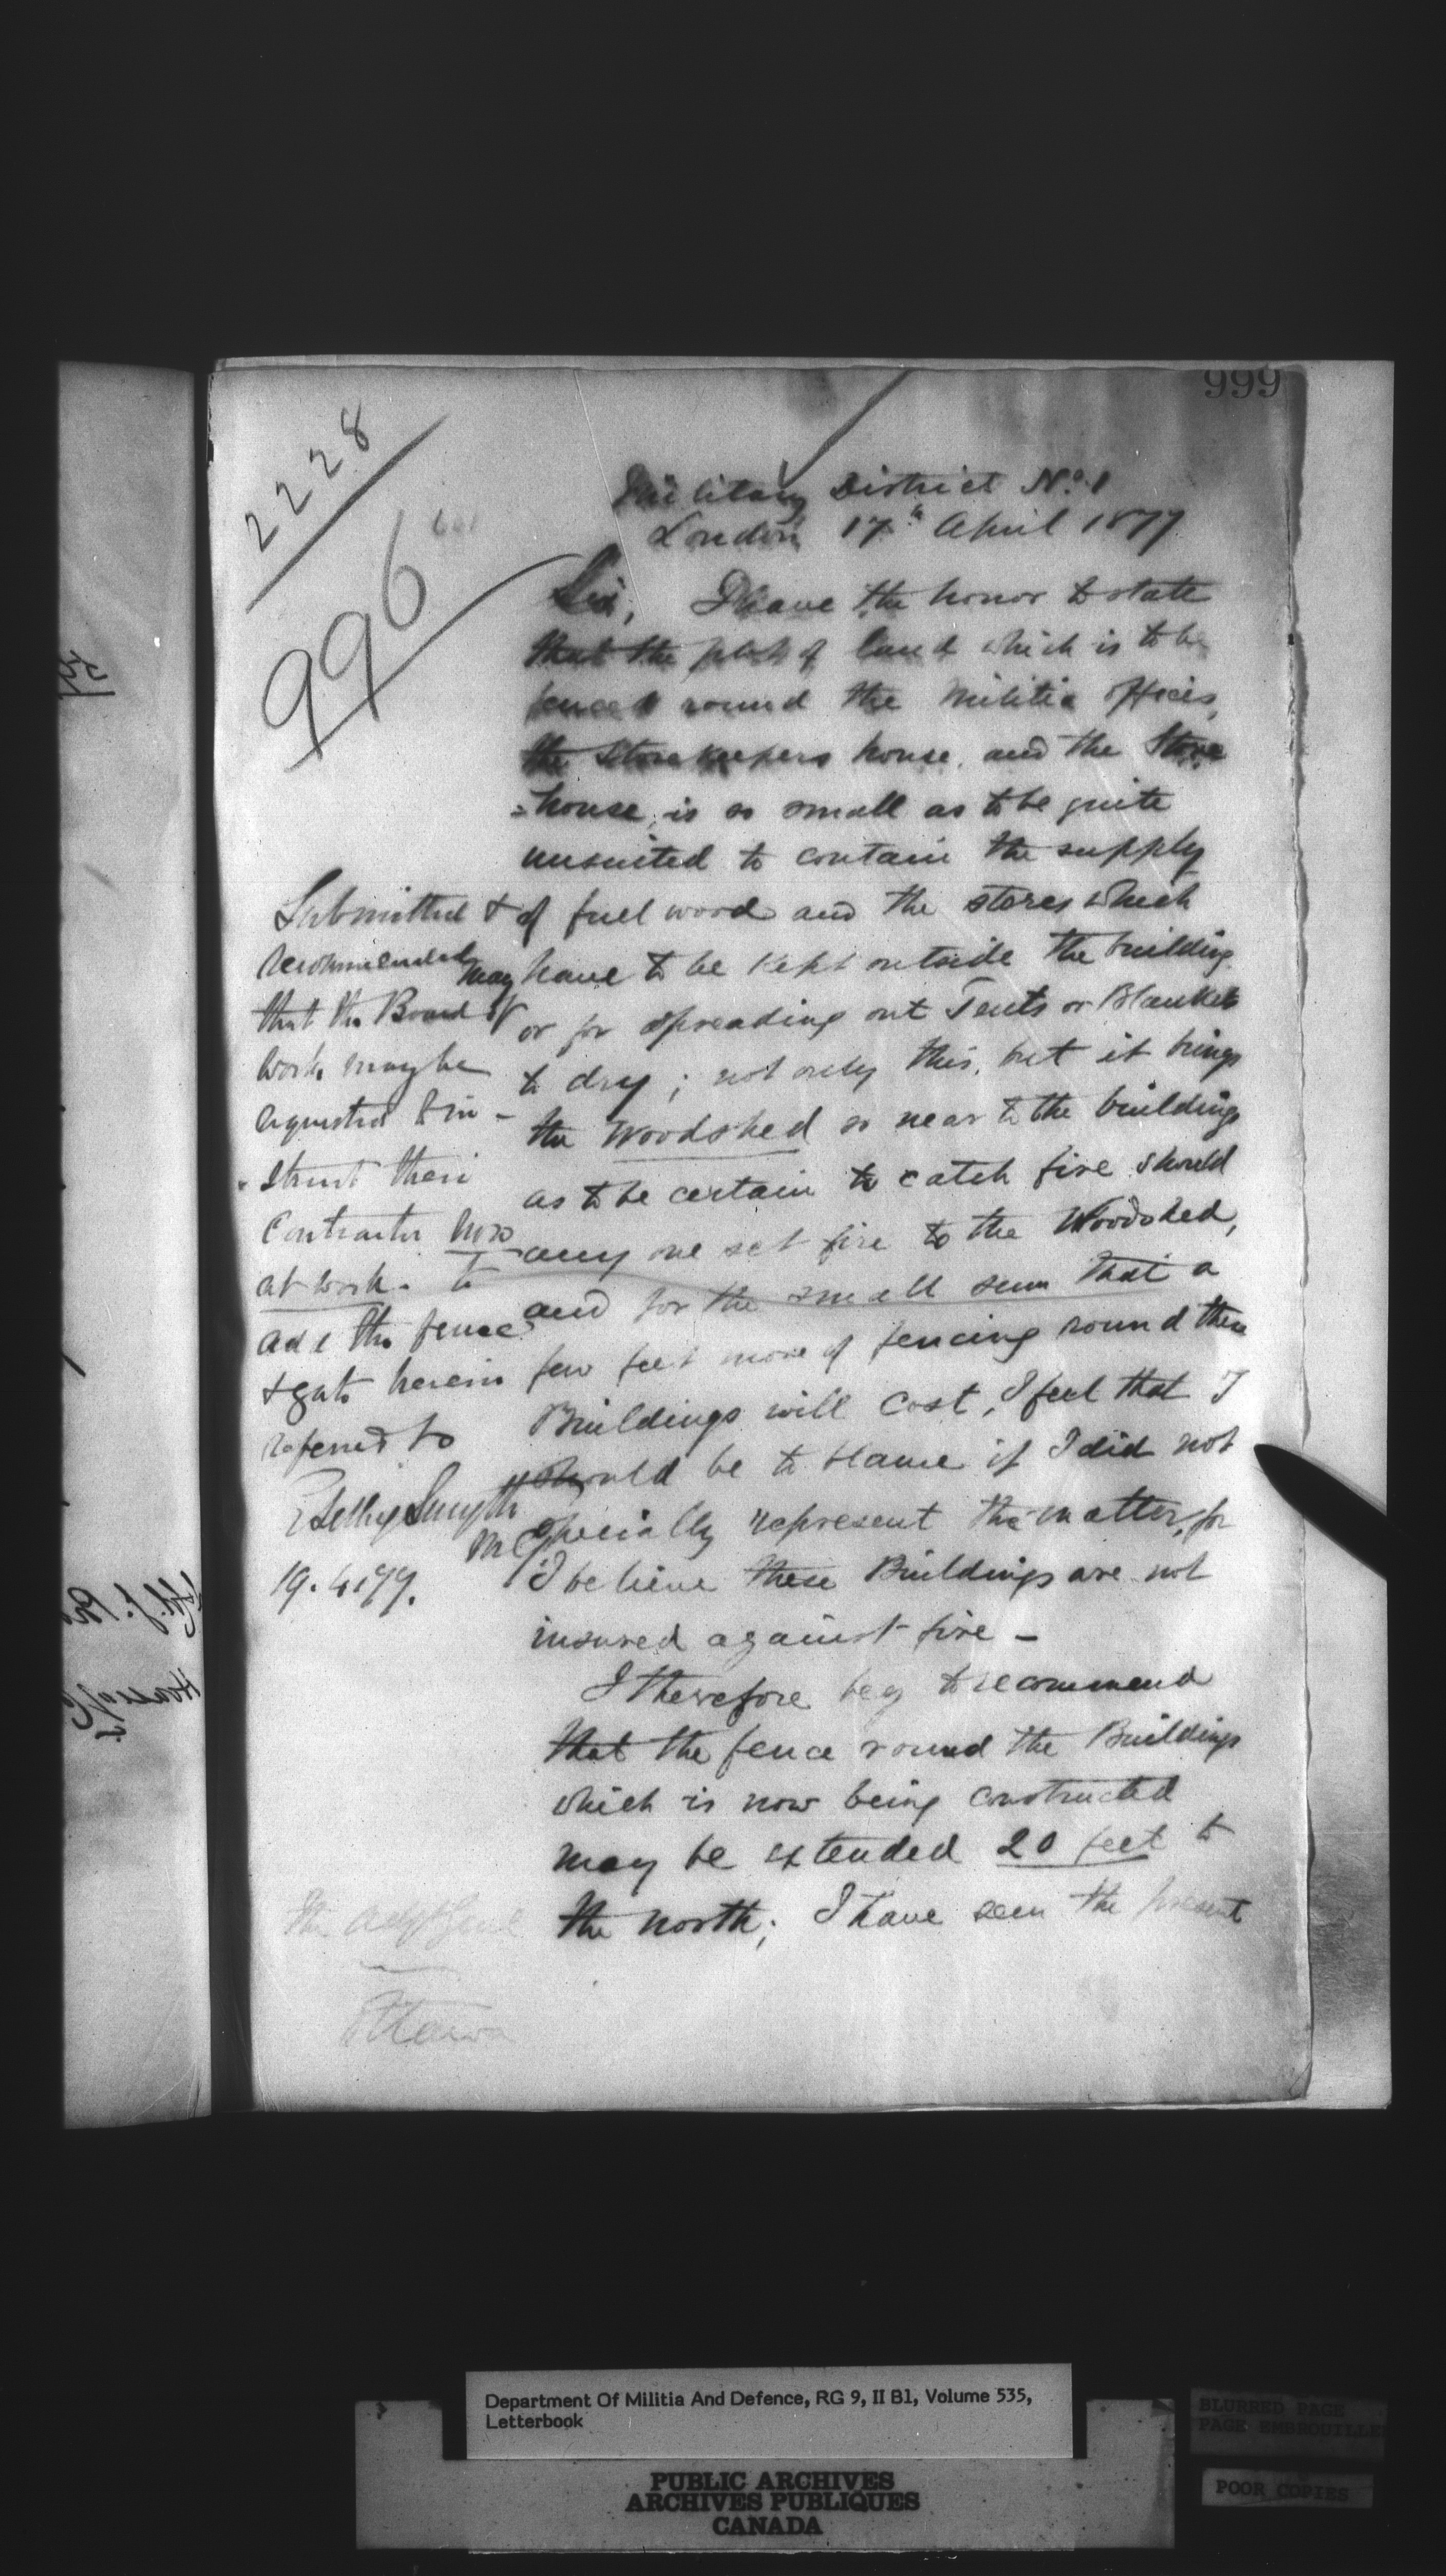 999
2228
996
Military District No. 1
London 17th April 1877
Sir, I have the honor to state
that the plot of land which is to be
fenced round the Militia offices,
the Storekeepers house, and the Store
=house, is so small as to be quite
unsuited to contain the supply
of fuel wood and the stores which
may have to be kept outside the building
or for spreading out Tents or Blankets
to dry; not only this, but it brings
the Woodshed so near to the buildings
as to be certain to catch fire should
any one set fire to the Woodshed,
and for the small sum that a
few feet more of fencing round these
Buildings will cost, I feel that I
should be to blame if I did not
specially represent the matter, for
I believe these Buildings are not
insured against fire -
I therefore beg to recommend
that the fence round the Buildings
which is now being constructed
may be extended 20 feet to
the north; I have seen the present
Submitted &
recommended
that the Board of
Works may be
requested to in-
struct their
Contractor now
at work - to
add the fence
& gate herein
referred to
E Selby Smyth
19.4.77.
Ottawa
Department Of Militia And Defence, RG 9, II B1, Volume 535,
Letterbook
PUBLIC ARCHIVES
ARCHIVES PUBLIQUES
CANADA
BLURRED PAGE
PAGE EMBROUILLEE
POOR COPIES